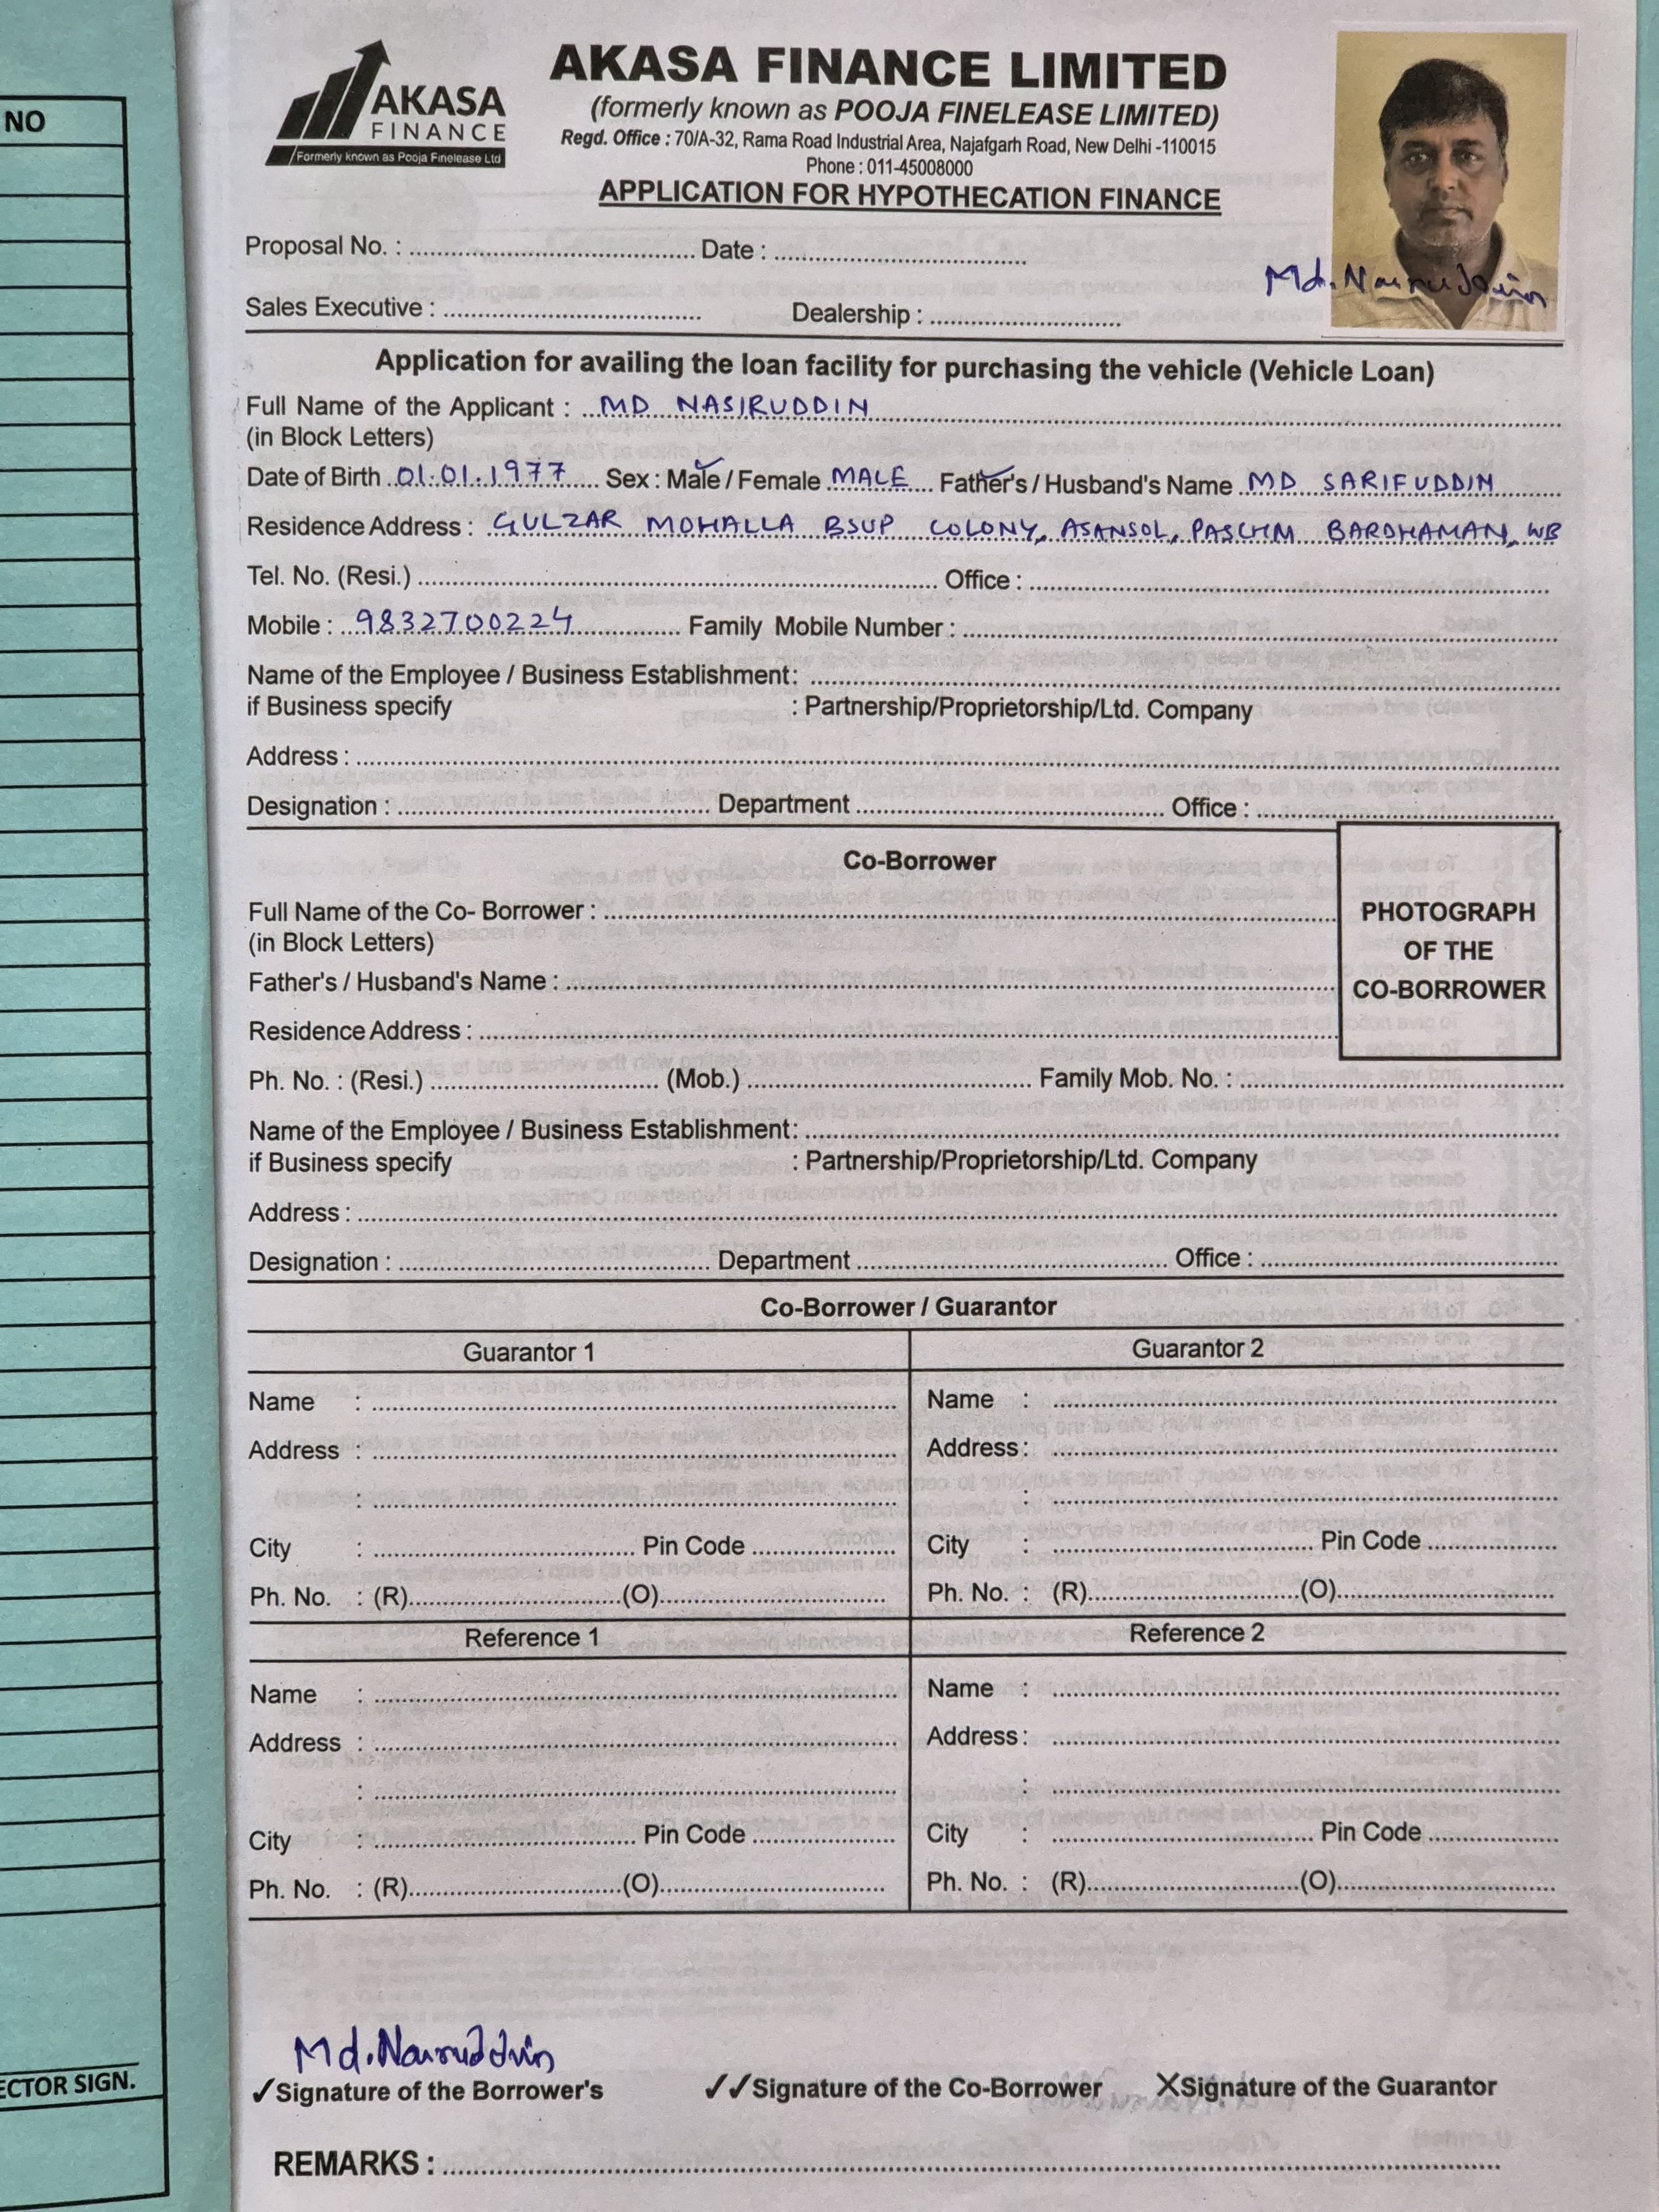 NO
ECTOR SIGN.
AKASA
FINANCE
Formerly known as Pooja Finelease Ltd
AKASA FINANCE LIMITED
(formerly known as POOJA FINELEASE LIMITED)
Regd. Office : 70/A-32, Rama Road Industrial Area, Najafgarh Road, New Delhi -110015
Phone : 011-45008000
APPLICATION FOR HYPOTHECATION FINANCE
Proposal No. : Date :
Md. Nasiruddin
Sales Executive : Dealership :
Application for availing the loan facility for purchasing the vehicle (Vehicle Loan)
Full Name of the Applicant : MD NASIRUDDIN
(in Block Letters)
Date of Birth 01.01.1977 Sex : Male / Female MALE Father's / Husband's Name MD SARIFUDDIN
Residence Address : GULZAR MOHALLA BSUP COLONY, ASANSOL, PASCHM BARDHAMAN, WB
Tel. No. (Resi.) Office :
Mobile : 9832700224 Family Mobile Number :
Name of the Employee / Business Establishment:
if Business specify : Partnership/Proprietorship/Ltd. Company
Address :
Designation : Department Office :
Co-Borrower
Full Name of the Co- Borrower :
(in Block Letters)
PHOTOGRAPH
OF THE
CO-BORROWER
Father's / Husband's Name :
Residence Address :
Ph. No. : (Resi.) (Mob.) Family Mob. No. :
Name of the Employee / Business Establishment:
if Business specify : Partnership/Proprietorship/Ltd. Company
Address :
Designation : Department Office :
Co-Borrower / Guarantor
Guarantor 1 Guarantor 2
Name : Name :
Address : Address :
: :
City : Pin Code City : Pin Code
Ph. No. : (R) (O) Ph. No. : (R) (O)
Reference 1 Reference 2
Name : Name :
Address : Address :
: :
City : Pin Code City : Pin Code
Ph. No. : (R) (O) Ph. No. : (R) (O)
Md. Nasiruddin
✓Signature of the Borrower's ✓✓Signature of the Co-Borrower XSignature of the Guarantor
REMARKS :